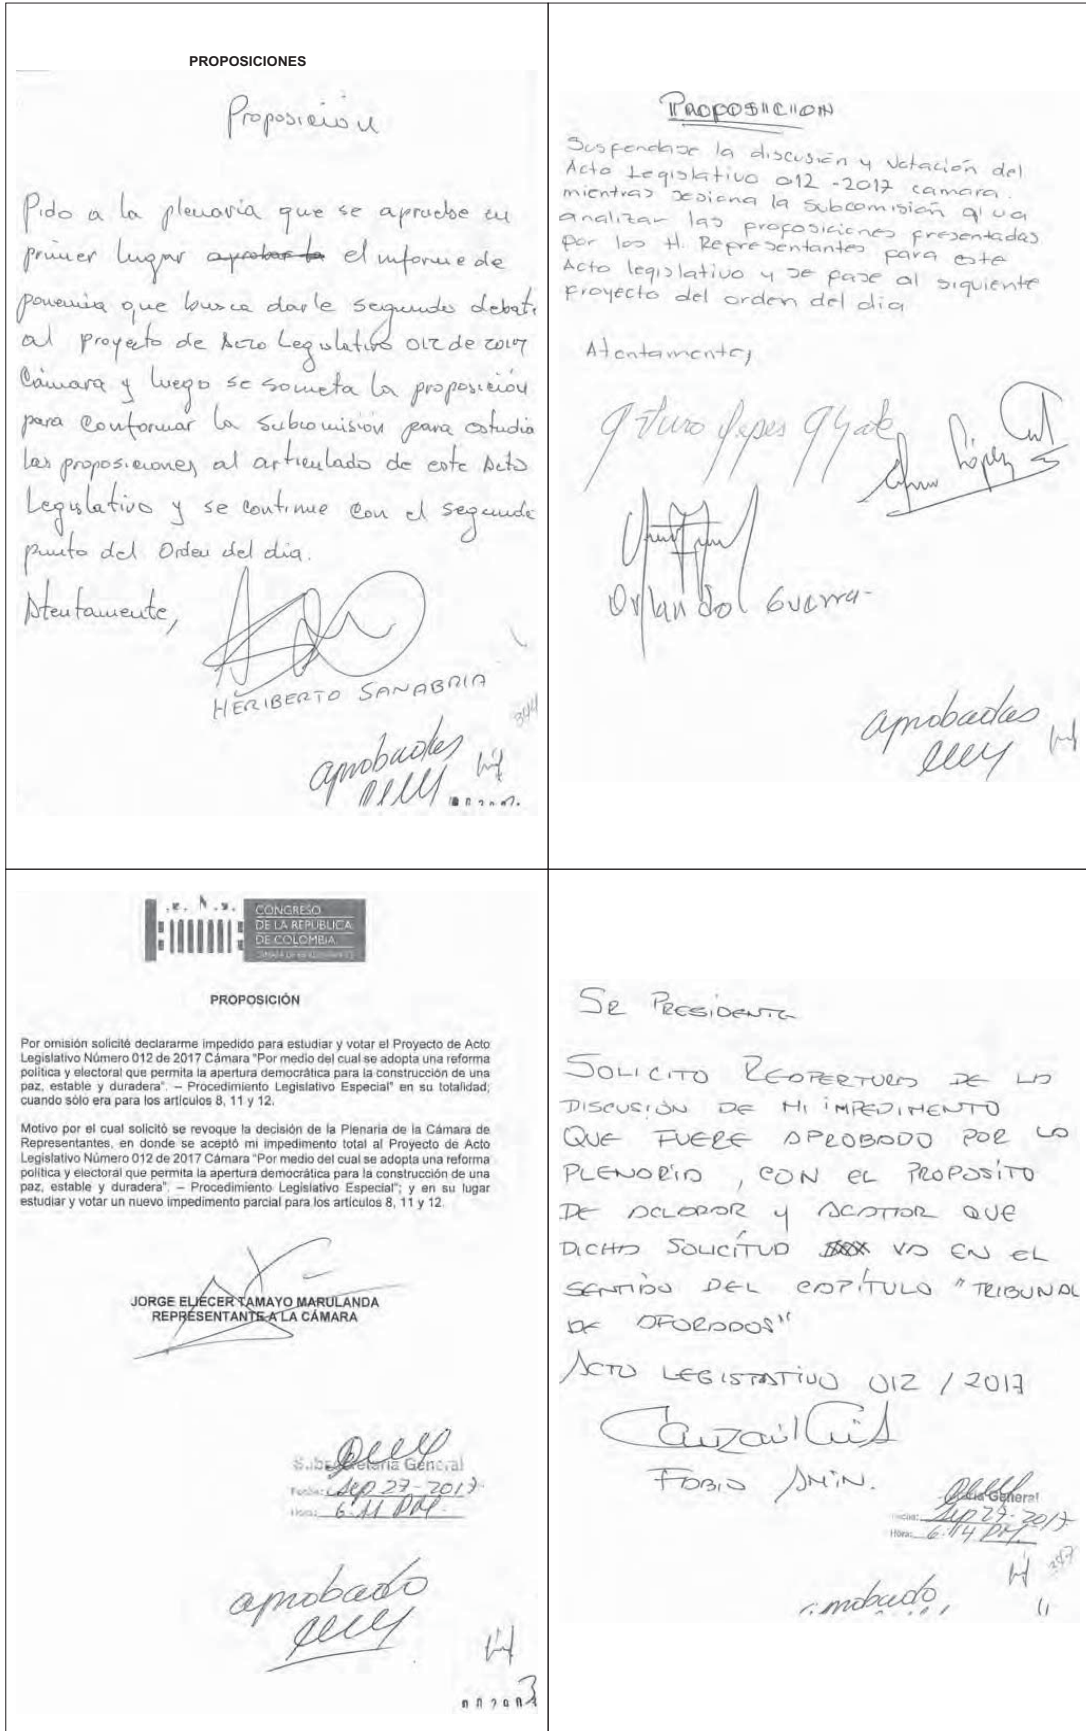 PROPOSICIONES
Proposición
Pido a la plenaria que se apruebe en
primer lugar aprobar la el informe de
ponencia que busca darle segundo debate
al proyecto de Acto Legislativo 012 de 2017
Cámara y luego se someta la proposición
para conformar la Subcomisión para estudia
las proposiciones al articulado de este Acto
Legislativo y se continue con el segundo
punto del Orden del dia.
Atentamente,
HERIBERTO SANABRIA
344
aprobadas
PROPOSICION
Suspendase la discusión y votación del
Acto Legislativo 012 -2017 camara.
mientras designa la subcomisión q' va
analizar las proposiciones presentadas
por los H. Representantes para este
Acto legislativo y se pase al siguiente
proyecto del orden del dia
Atentamente,
Arturo Yepes Alzate
López
Orlando Guerra
aprobadas
CONGRESO
DE LA REPÚBLICA
DE COLOMBIA
CÁMARA DE REPRESENTANTES
PROPOSICIÓN
Por omisión solicité declararme impedido para estudiar y votar el Proyecto de Acto
Legislativo Número 012 de 2017 Cámara "Por medio del cual se adopta una reforma
política y electoral que permita la apertura democrática para la construcción de una
paz, estable y duradera". – Procedimiento Legislativo Especial" en su totalidad;
cuando sólo era para los artículos 8, 11 y 12.
Motivo por el cual solicitó se revoque la decisión de la Plenaria de la Cámara de
Representantes, en donde se aceptó mi impedimento total al Proyecto de Acto
Legislativo Número 012 de 2017 Cámara "Por medio del cual se adopta una reforma
política y electoral que permita la apertura democrática para la construcción de una
paz, estable y duradera". – Procedimiento Legislativo Especial"; y en su lugar
estudiar y votar un nuevo impedimento parcial para los artículos 8, 11 y 12.
JORGE ELIÉCER TAMAYO MARULANDA
REPRESENTANTE A LA CÁMARA
Subsecretaria General
Fecha: Sep 27-2017
Hora: 6:11 PM
aprobado
SR PRESIDENTE
SOLICITO REAPERTURA DE LA
DISCUSIÓN DE MI IMPEDIMENTO
QUE FUERE APROBADO POR LA
PLENARIA, CON EL PROPOSITO
DE ACLARAR Y ACOTAR QUE
DICHA SOLICITUD VA EN EL
SENTIDO DEL CAPÍTULO "TRIBUNAL
DE AFORADOS"
ACTO LEGISLATIVO 012 / 2017
FABIO AMIN.
General
Fecha: Sep 27-2017
Hora: 6:14 PM
347
aprobado